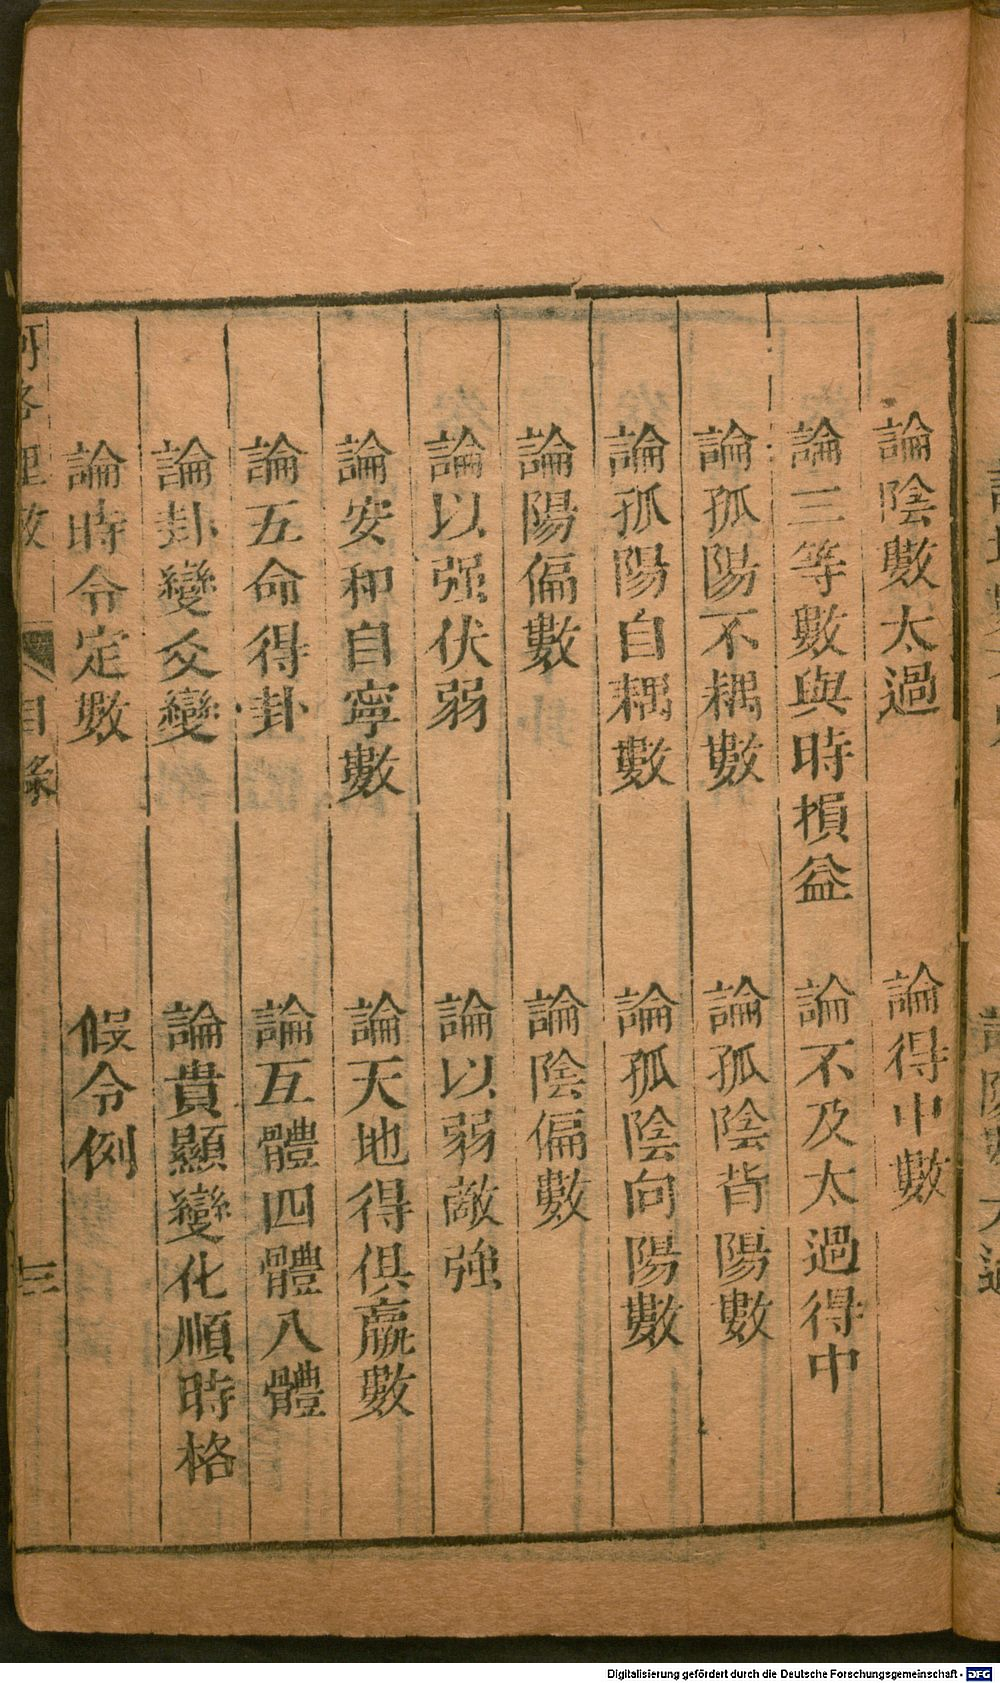 論陰數太過　論得中數
論三等數與時損益　論不及太過得中
論孤陽不耦數　論孤陰背陽數
論孤陽自耦數　論孤陰向陽數
論陽偏數　論陰偏數
論以强伏弱　論以弱敵強
論安和自寧數　論天地得俱嬴數
論五命得卦　論互體四體八體
論卦變爻變　論貴顯變化順時格
論時令定數　假令例
河洛理數　目錄　三
Digitalisierung gefördert durch die Deutsche Forschungsgemeinschaft - DFG